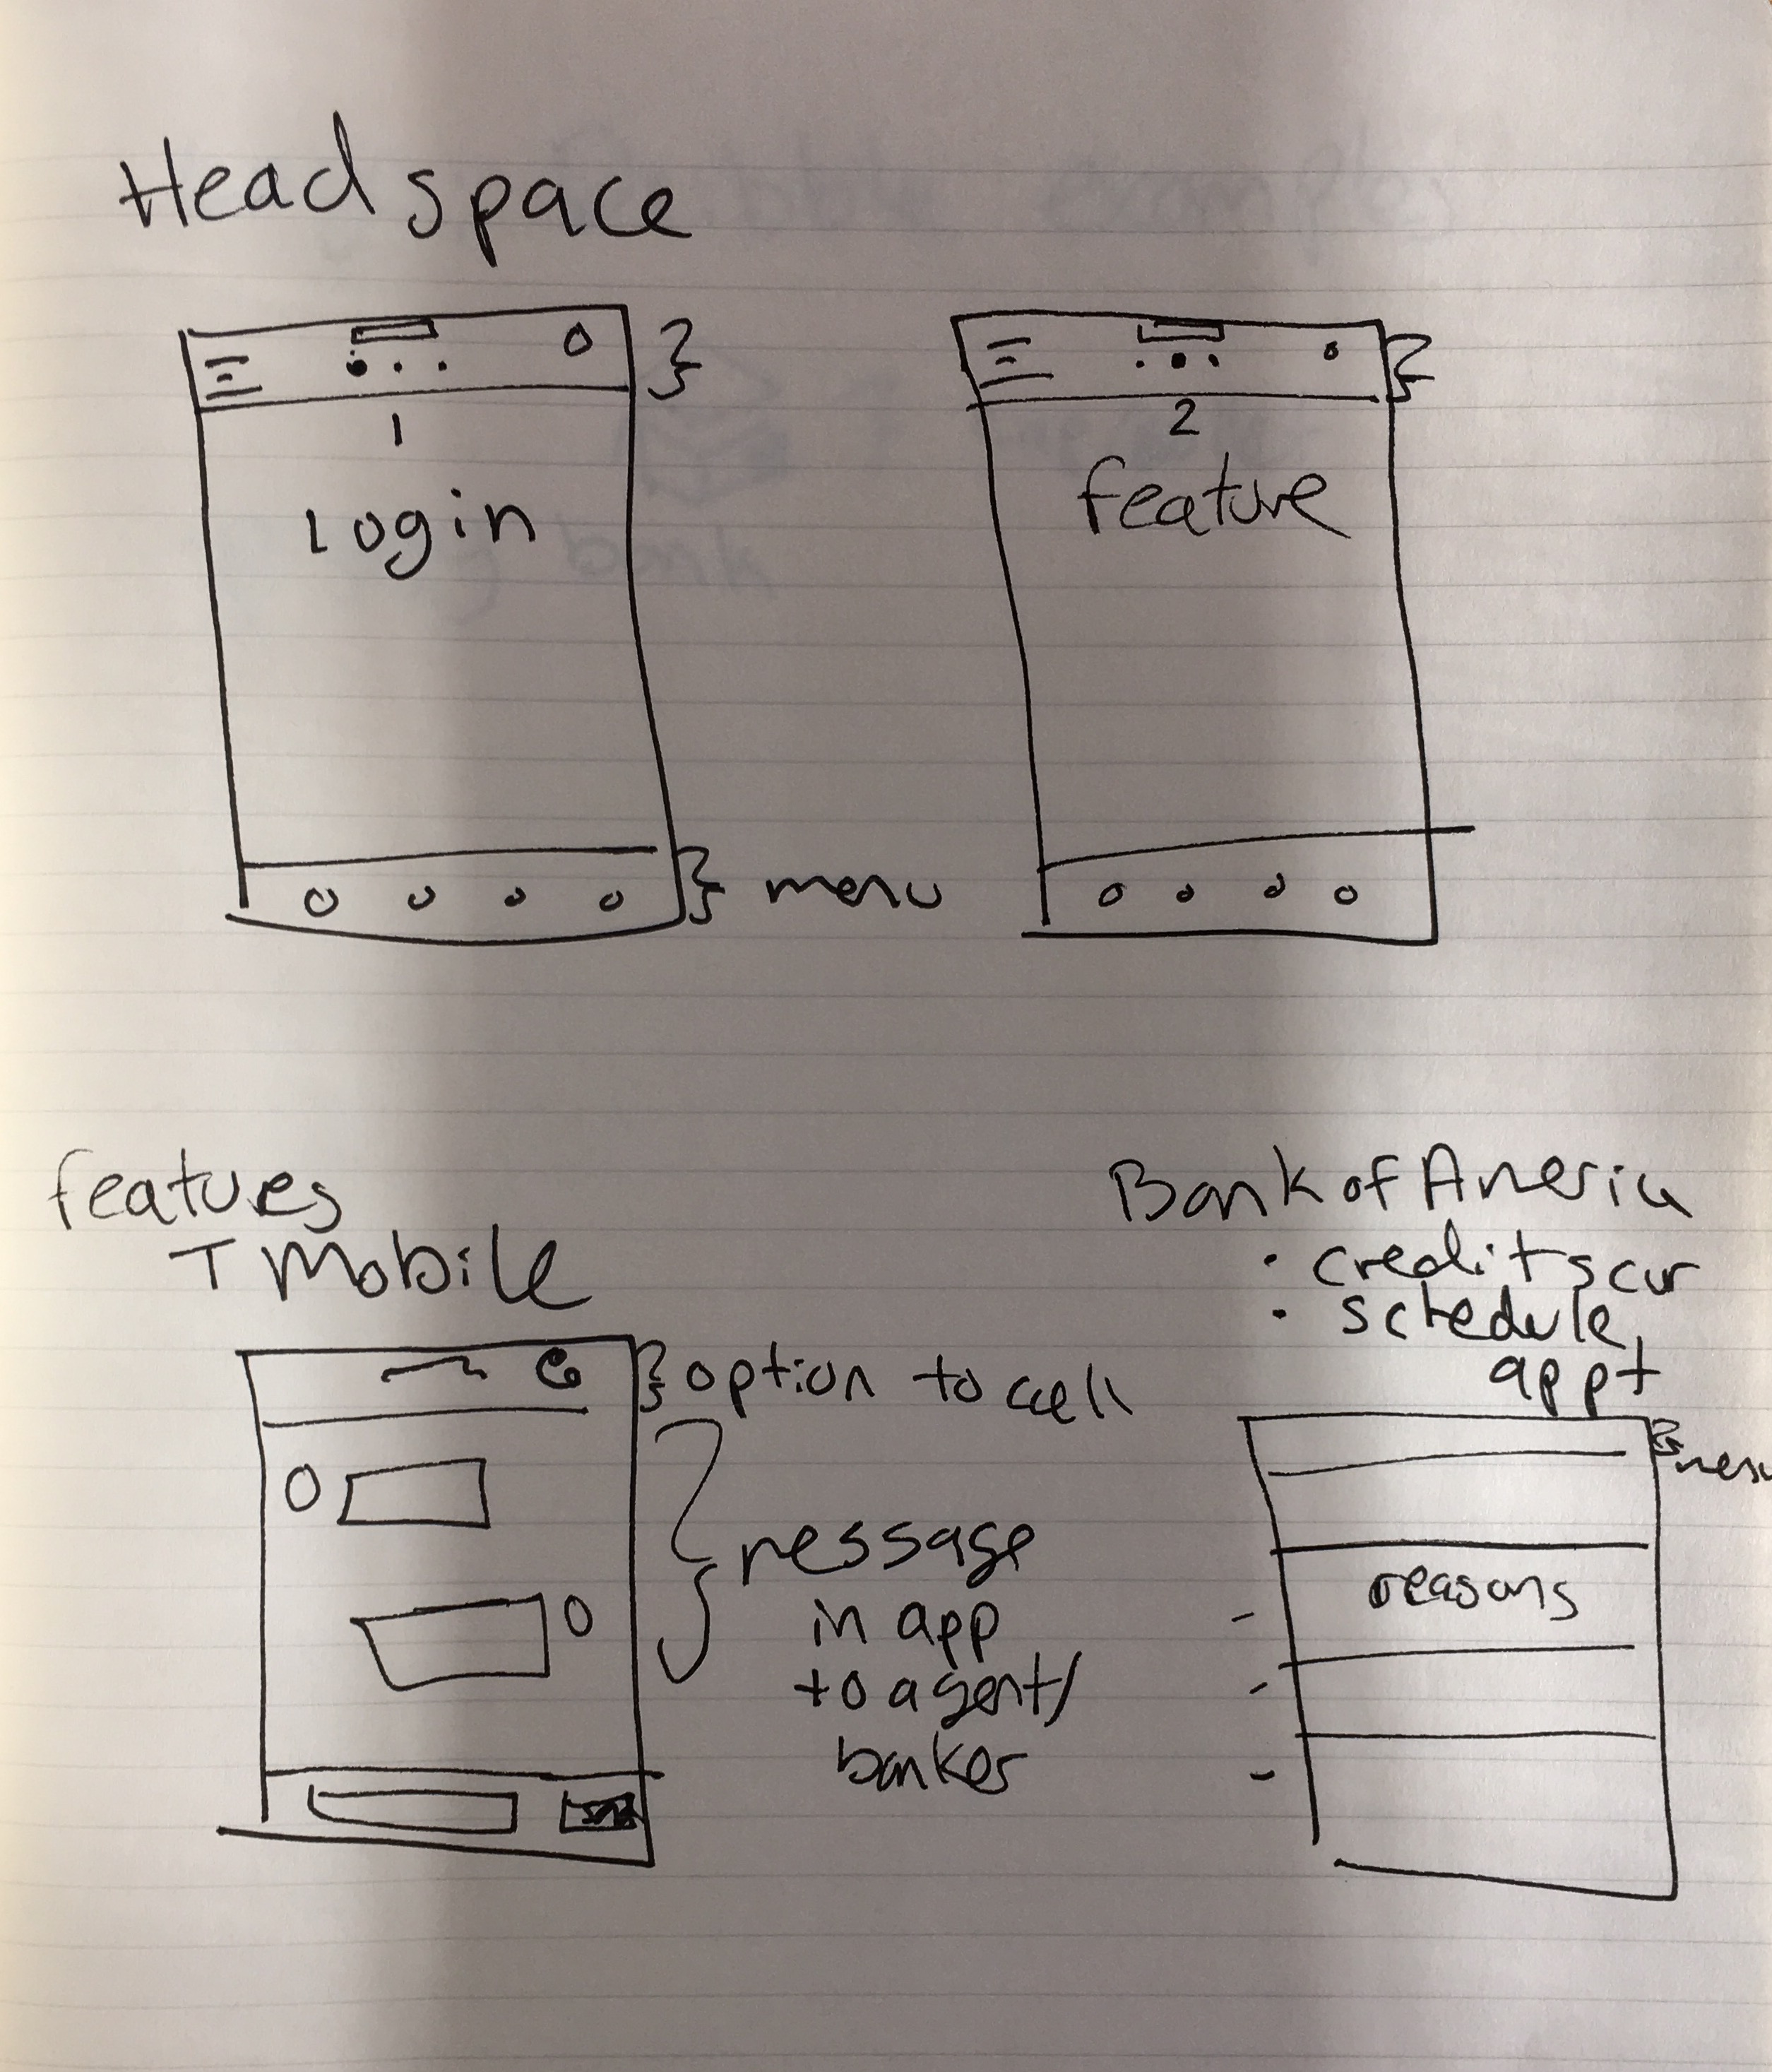 Headspace
1
Login
2
feature
menu
features
T Mobile
option to call
message
in app
to agent/
banker
Bank of America
· credit scor
· schedule
appt
menu
reasons